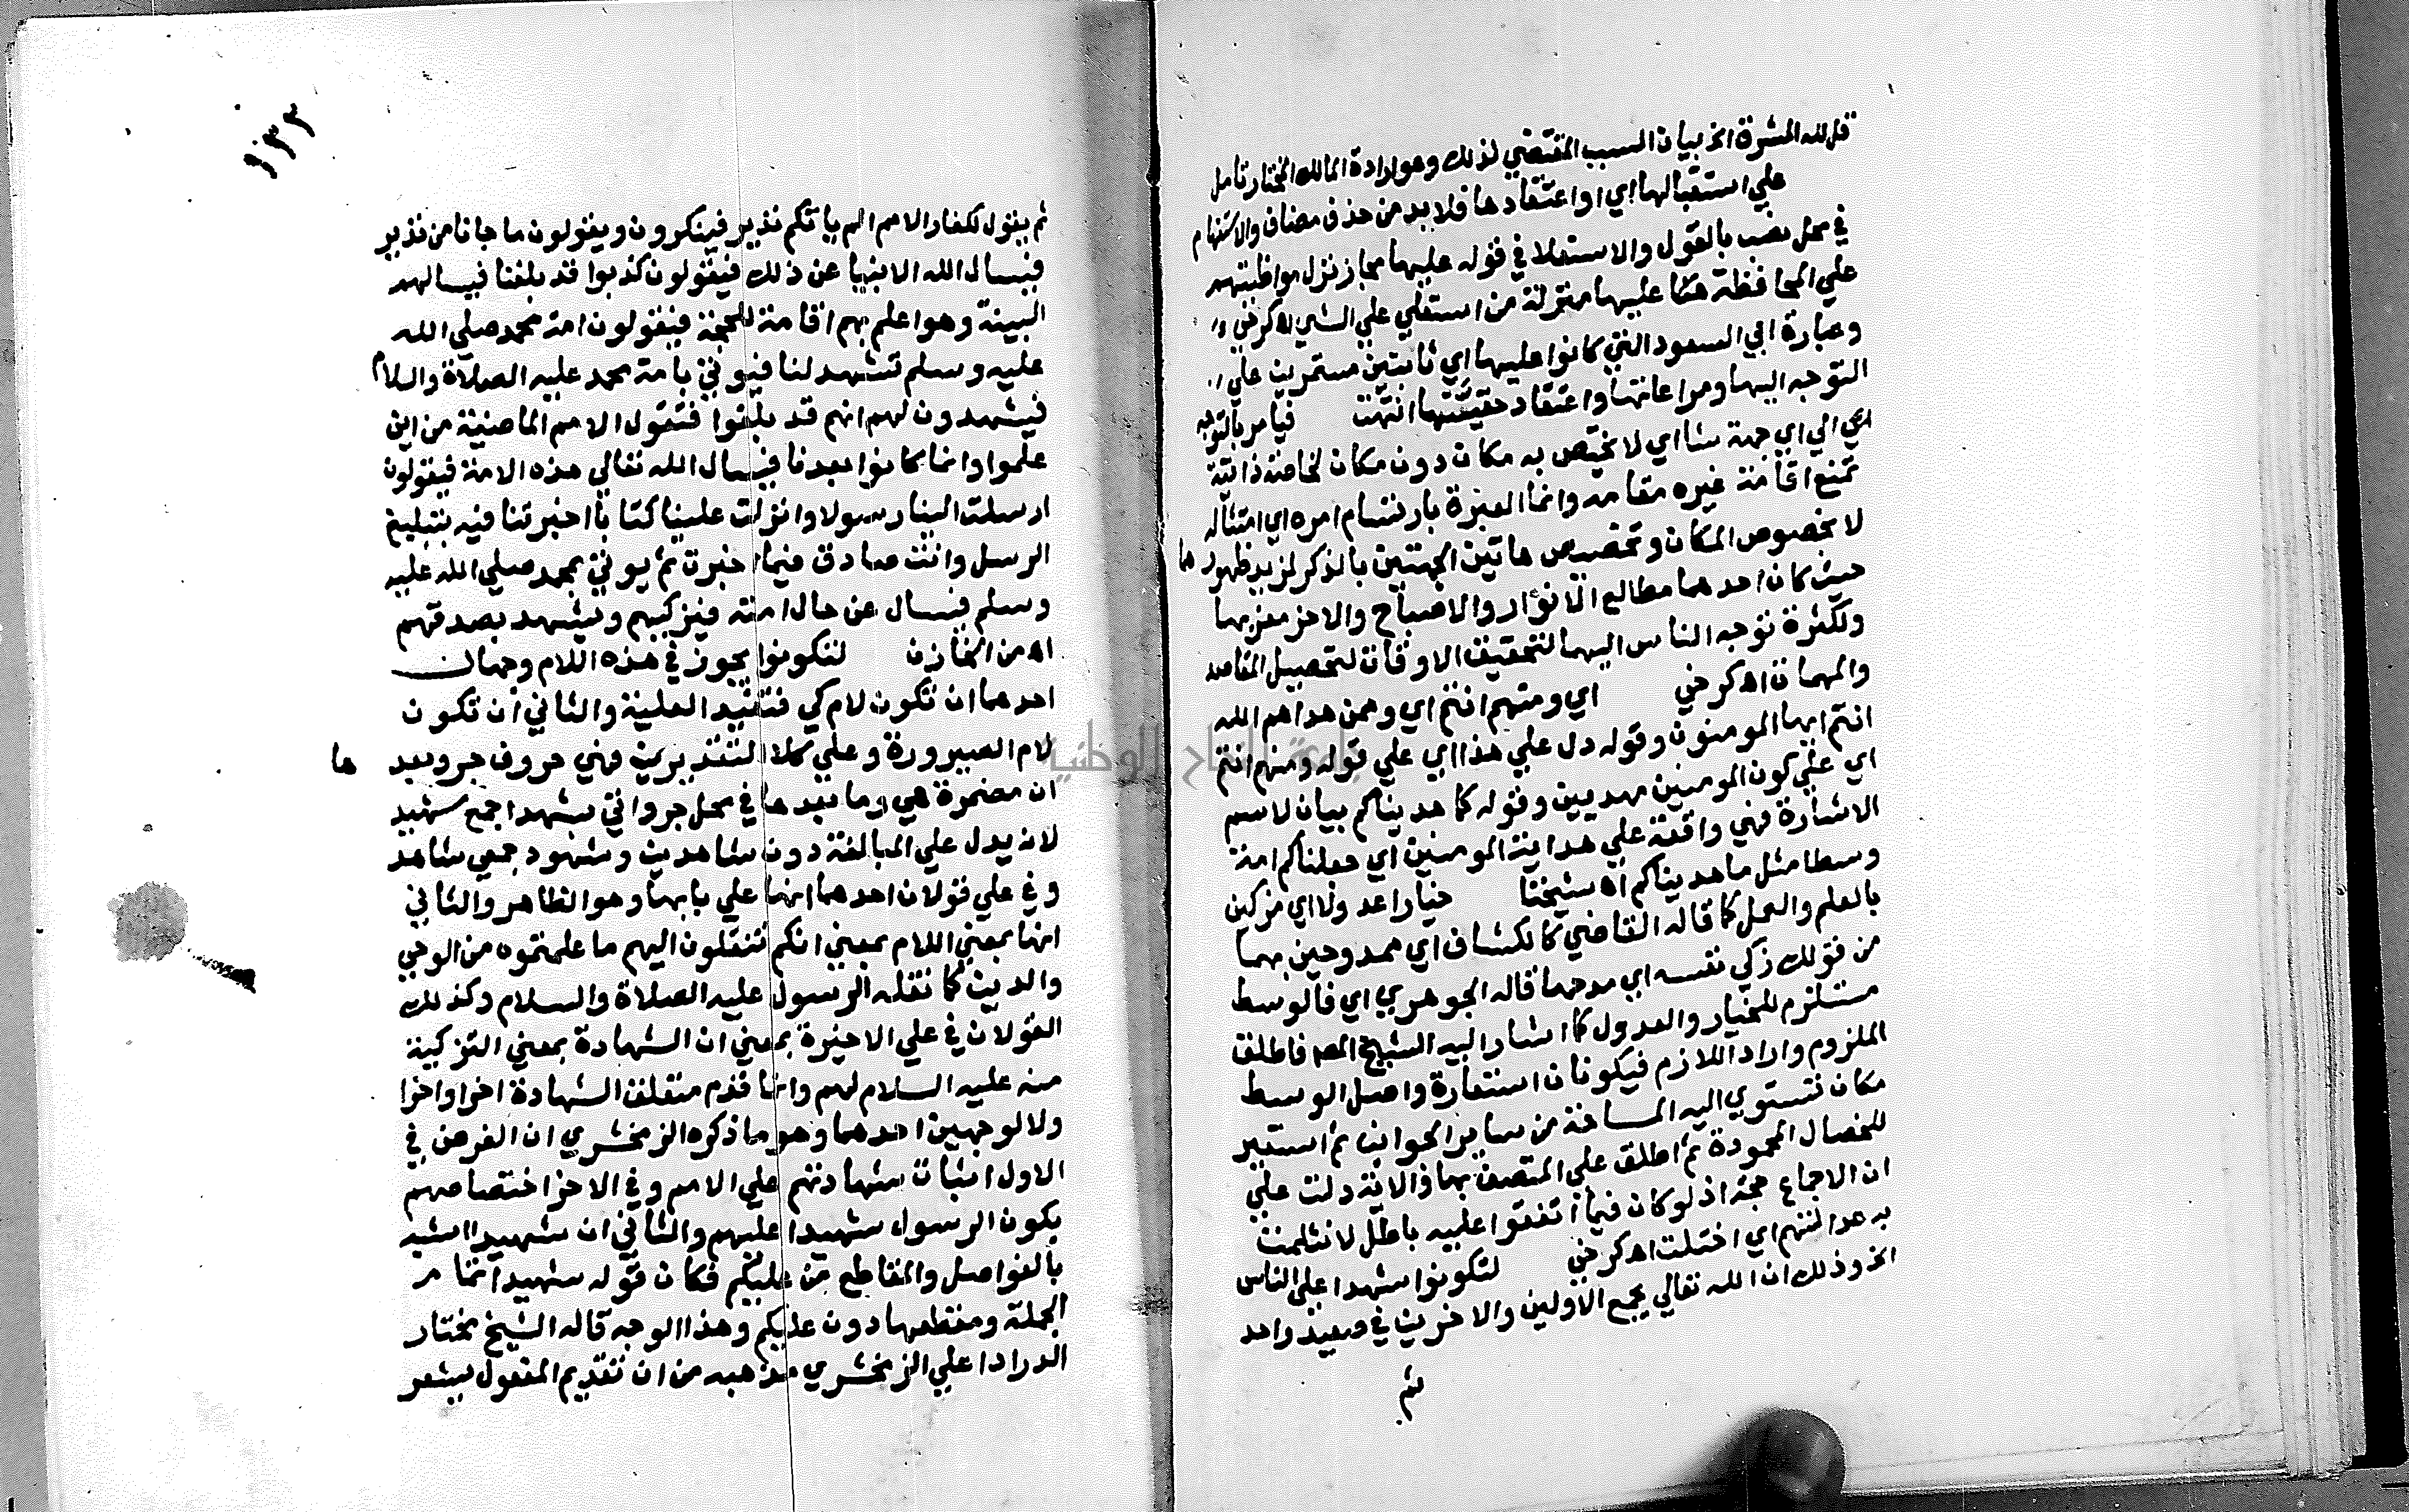 قل لله المشرق الخ بيان السبب المقتضي لذلك وهو ارادة المالك المختار تامل
علي استقبالها اي او اعتقادها فلا بد من حذف مضاف والاستفهام
في محل نصب بالقول والاستعلا في قوله عليها مجاز نزل مواظبتهم
علي المحافظة عليها منزلة من استعلي علي الشي اه كرخي
وعبارة ابي السعود التي كانوا عليها اي ثابتين مستمرين علي
التوجه اليها ومراعاتها واعتقاد حقيتها انتهت فيامر بالتوجه
الي اي جهة شا اي لا يختص به مكان دون مكان لخاصة ذاتية
تمنع اقامة غيره مقامه وانما العبرة بارتسام امره اي امتثاله
لا بخصوص المكان وتخصيص هاتين الجهتين بالذكر لمزيد ظهورها
حيث كان احدهما مطالع الانوار والاصباح والاخر مغربها
ولكثرة توجه الناس اليهما لتحقيق الاوقات لتحصيل المقاصد
والمهمات اه كرخي اي ومنهم انتم اي وممن هداهم الله
انتم ايها المومنون وقوله دل علي هذا اي علي قوله ومنهم انتم
اي علي كون المومنين مهديين وقوله كما هديناكم بيان لاسم
الاشارة فهي واقعة علي هداية المومنين اي جعلناكم امة
وسطا مثل ما هديناكم اه شيخنا خيارا عدولا اي مزكين
بالعلم والعمل كما قاله القاضي كالكشاف اي ممدوحين بهما
من قولك زكي نفسه اي مدحها قاله الجوهري اي فالوسط
مستلزم للخيار والعدول كما اشار اليه الشيخ المصر فاطلق
الملزوم واراد اللازم فيكونان استعارة واصل الوسط
مكان تستوي اليه المساحة من ساير الجوانب ثم استعير
للخصال المحمودة ثم اطلق علي المتصف بها والاية دلت علي
ان الاجماع حجة اذ لو كان فيما اتفقوا عليه باطل لانثلمت
به عدالتهم اي اختلت اه كرخي لتكونوا شهدا علي الناس
الخ وذلك ان الله تعالي يجمع الاولين والاخرين في صعيد واحد
ثم
١٣٣
ثم يقول لكفار الامم الم ياتكم نذير فينكرون ويقولون ما جانا من نذير
فيسال الله الانبيا عن ذلك فيقولون كذبوا قد بلغنا فيسالهم
البينة وهو اعلم بهم اقامة للحجة فيقولون امة محمد صلي الله
عليه وسلم تشهد لنا فيوتي بامة محمد عليه الصلاة والسلام
فيشهدون لهم انهم قد بلغوا فتقول الامم الماضية من اين
علموا وانما كانوا بعدنا فيسال الله تعالي هذه الامة فيقولون
ارسلت الينا رسولا وانزلت علينا كتابا اخبرتنا فيه بتبليغ
الرسل وانت صادق فيما اخبرت ثم يوتي بمحمد صلي الله عليه
وسلم فيسال عن حال امته فيزكيهم ويشهد بصدقهم
اه من الخازن لتكونوا يجوز في هذه اللام وجهان
احدهما ان تكون لام كي فتفيد العلية والثاني ان تكون
لام الصيرورة وعلي كلا التقديرين فهي حرف جر وبعدها
ان مضمرة هي وما بعدها في محل جر واتي بشهدا جمع شهيد
لانه يدل علي المبالغة دون شاهدين وشهود جمعي شاهد
وفي علي قولان احدهما انها علي بابها وهو الظاهر والثاني
انها بمعني اللام بمعني انكم تنقلون اليهم ما علمتموه من الوحي
والدين كما نقله الرسول عليه الصلاة والسلام وكذلك
القولان في علي الاخيرة بمعني ان الشهادة بمعني التزكية
منه عليه السلام لهم وانما قدم متعلق الشهادة اخرا واخرا
ولا لوجهين احدهما وهو ما ذكره الزمخشري ان الغرض في
الاول اثبات شهادتهم علي الامم وفي الاخر اختصاصهم
بكون الرسول شهيدا عليهم والثاني ان شهيدا اشبه
بالفواصل والمقاطع من عليكم فكان قوله شهيدا تمام
الجملة ومقطعها دون عليكم وهذا الوجه قاله الشيخ مختار
الدرادا علي الزمخشري مذهبه من ان تقديم المفعول يشعر